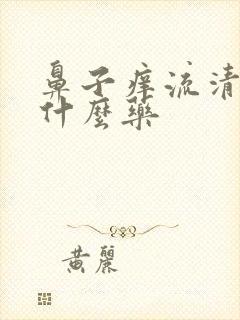 鼻子痒流清
什麼藥
黄麗